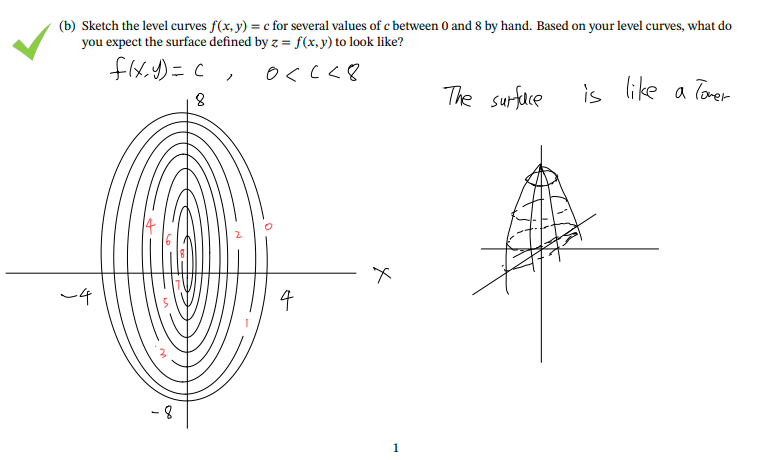 (b) Sketch the level curves f(x, y) = c for several values of c between 0 and 8 by hand. Based on your level curves, what do
you expect the surface defined by z = f(x, y) to look like?
f(x,y) = c , 0 < c < 8
The surface is like a Tower
8
4
2
0
6
8
x
7
-4
5
4
1
3
-8
1